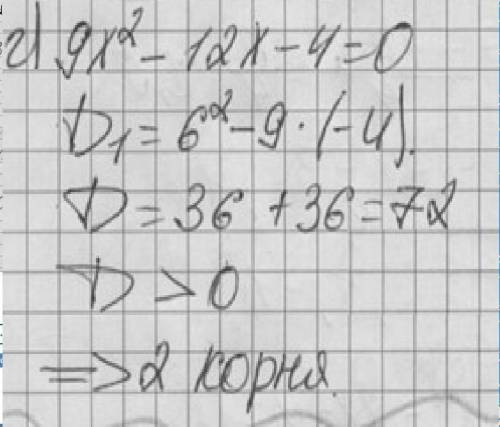 г) 9x² - 12x - 4 = 0
D₁ = 6² - 9 · (-4).
D = 36 + 36 = 72
D > 0
=> 2 корня.